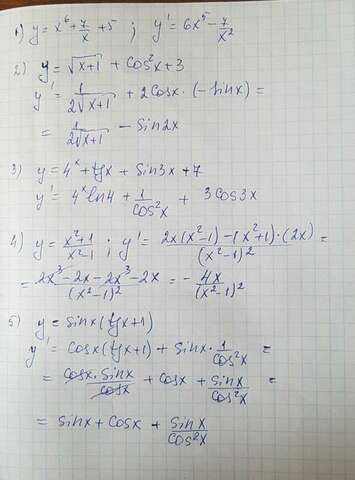 1) y = x⁶ + 7/x + 5 ; y' = 6x⁵ - 7/x²
2) y = √(x+1) + cos²x + 3
y' = 1/(2√(x+1)) + 2cosx · (-sinx) =
= 1/(2√(x+1)) - sin2x
3) y = 4ˣ + tgx + sin3x + 7
y' = 4ˣ ln4 + 1/cos²x + 3cos3x
4) y = (x²+1)/(x²-1) ; y' = (2x(x²-1) - (x²+1)·(2x))/(x²-1)² =
= (2x³ - 2x - 2x³ - 2x)/(x²-1)² = - 4x/(x²-1)²
5) y = sinx(tgx+1)
y' = cosx(tgx+1) + sinx · 1/cos²x =
= cosx · sinx/cosx + cosx + sinx/cos²x =
= sinx + cosx + sinx/cos²x